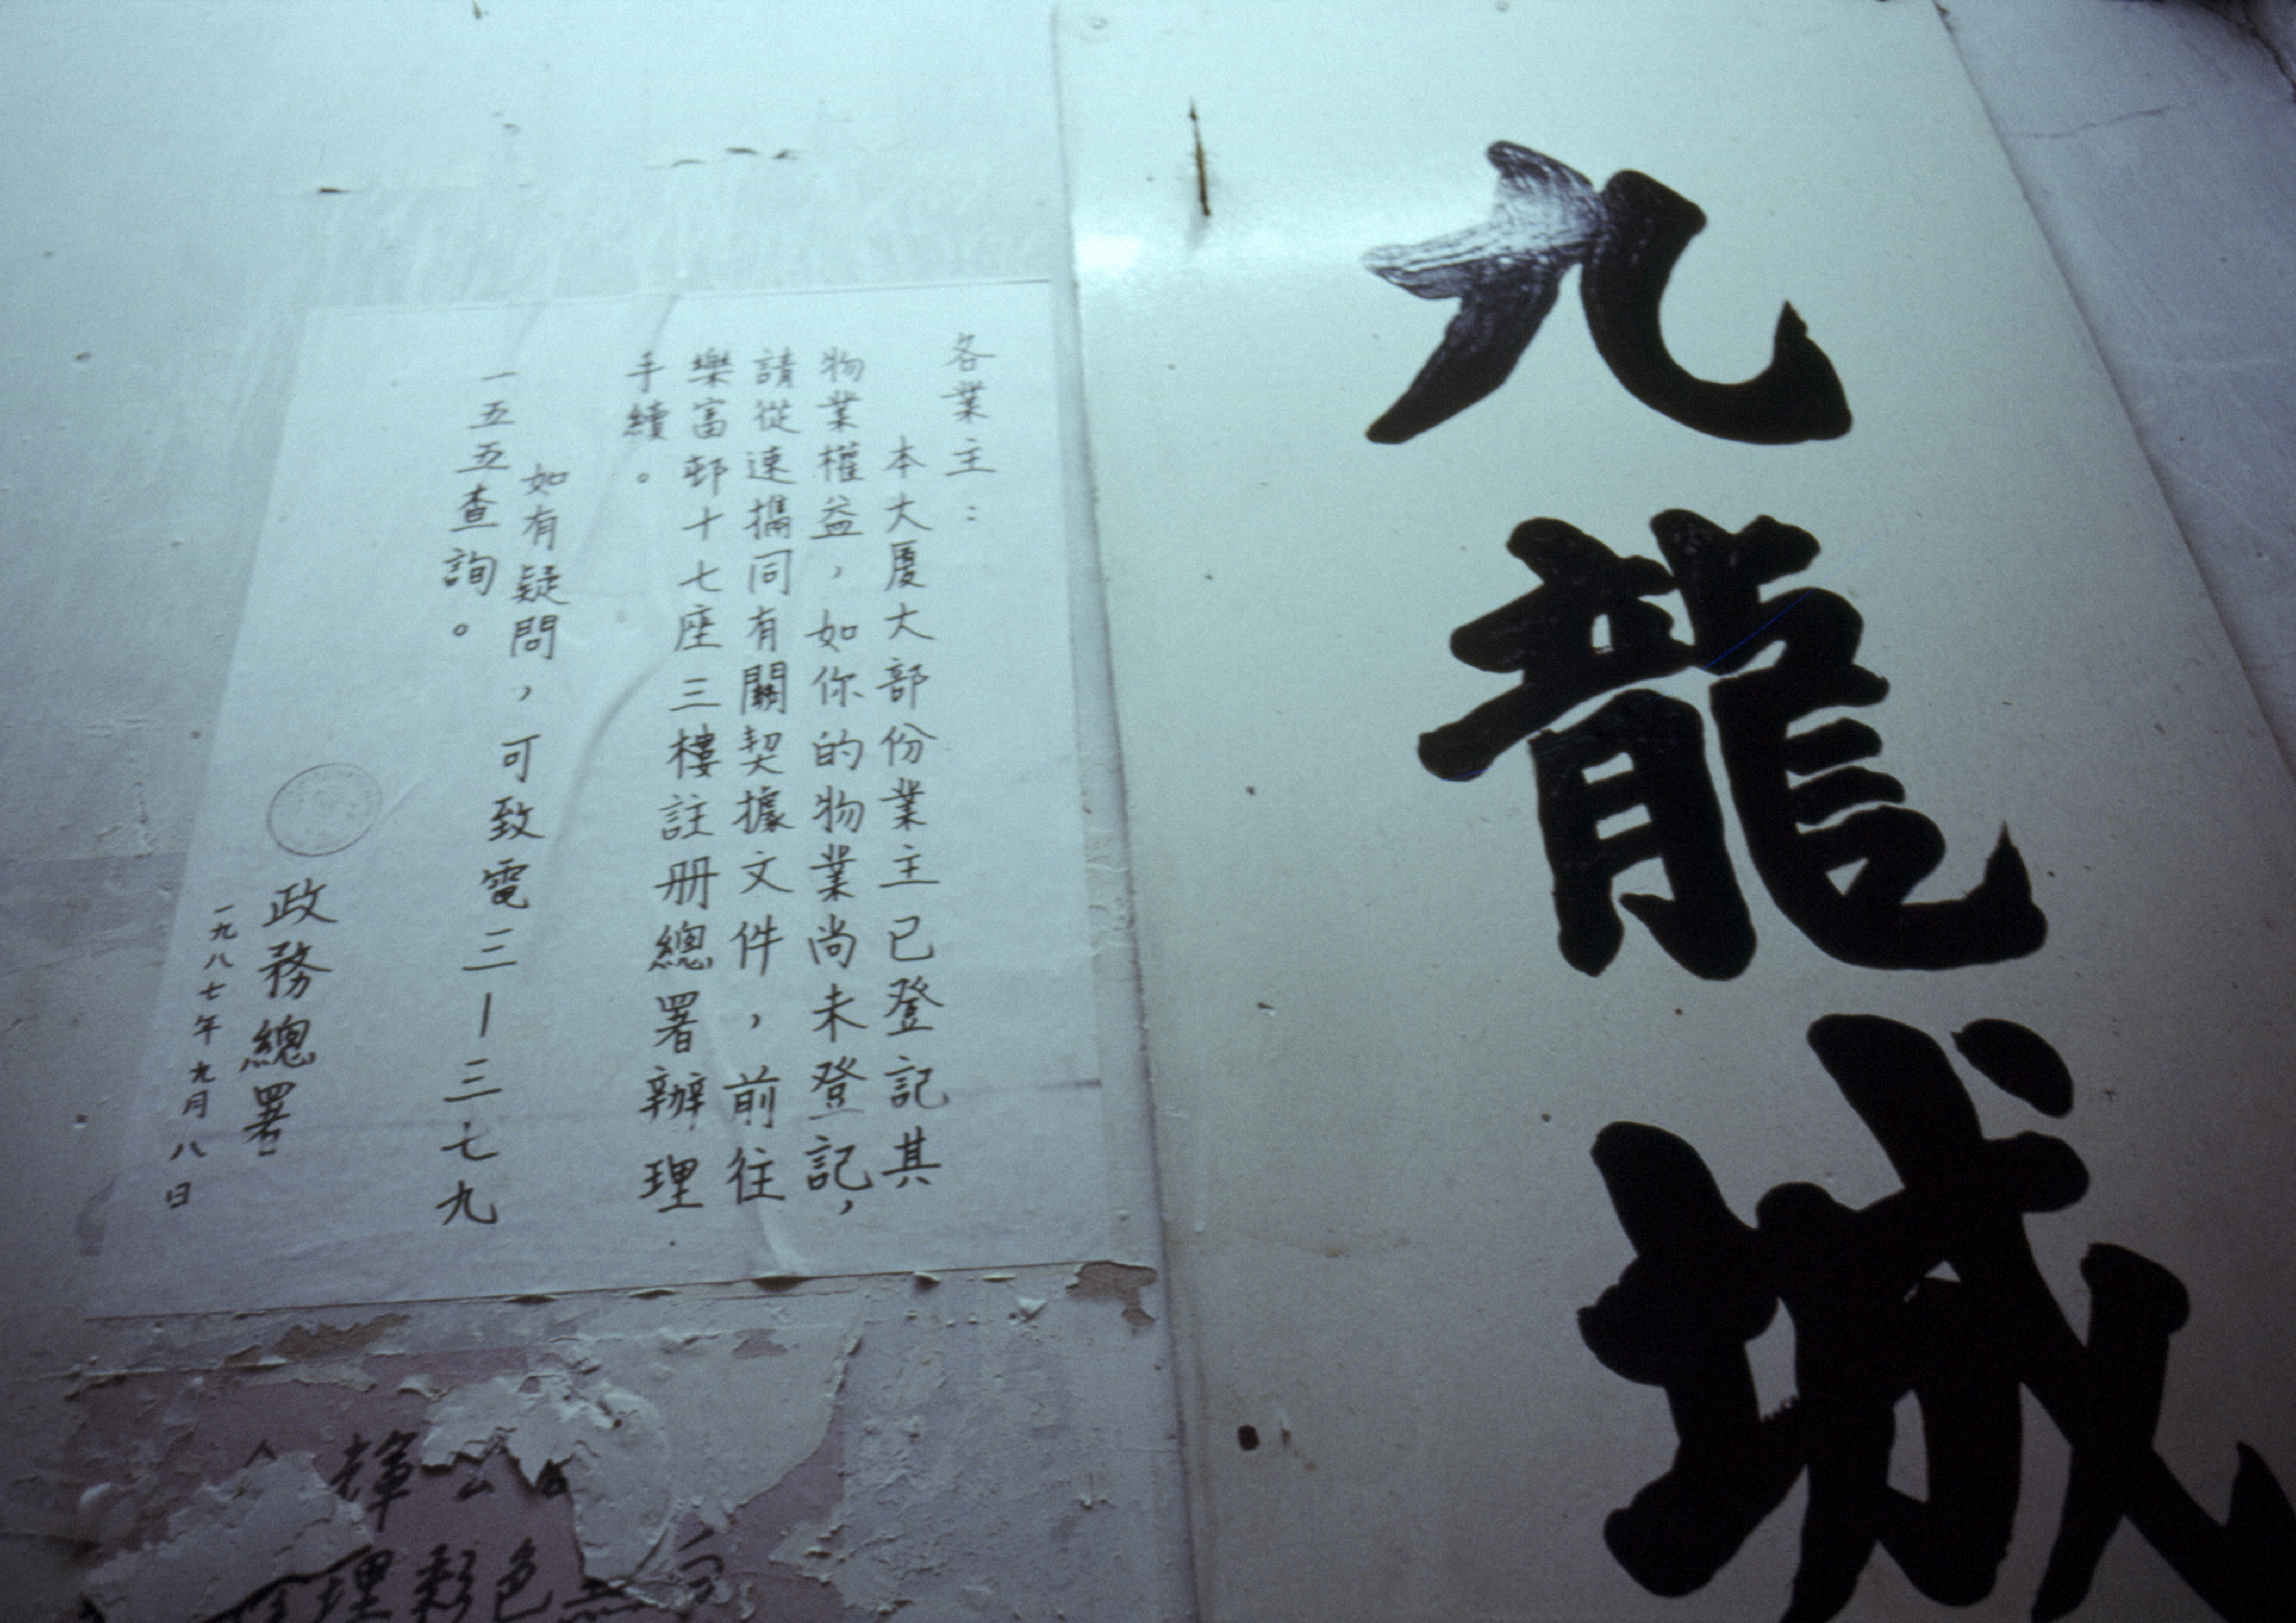 九龍城
各業主：
本大厦大部份業主已登記其
物業權益，如你的物業尚未登記，
請從速攜同有關契據文件，前往
樂富邨十七座三樓註册總署辦理
手續。
如有疑問，可致電三－三七九
一五五查詢。
政務總署
一九八七年九月八日
輝公
理彩色